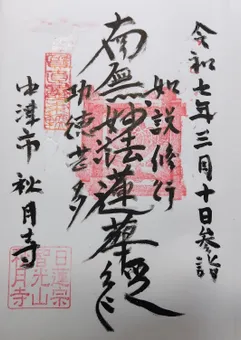 令和七年三月十日参詣
如説修行
南無妙法蓮華経
功徳甚多
中津市 秋月寺
日蓮宗
賀光山
秋月寺